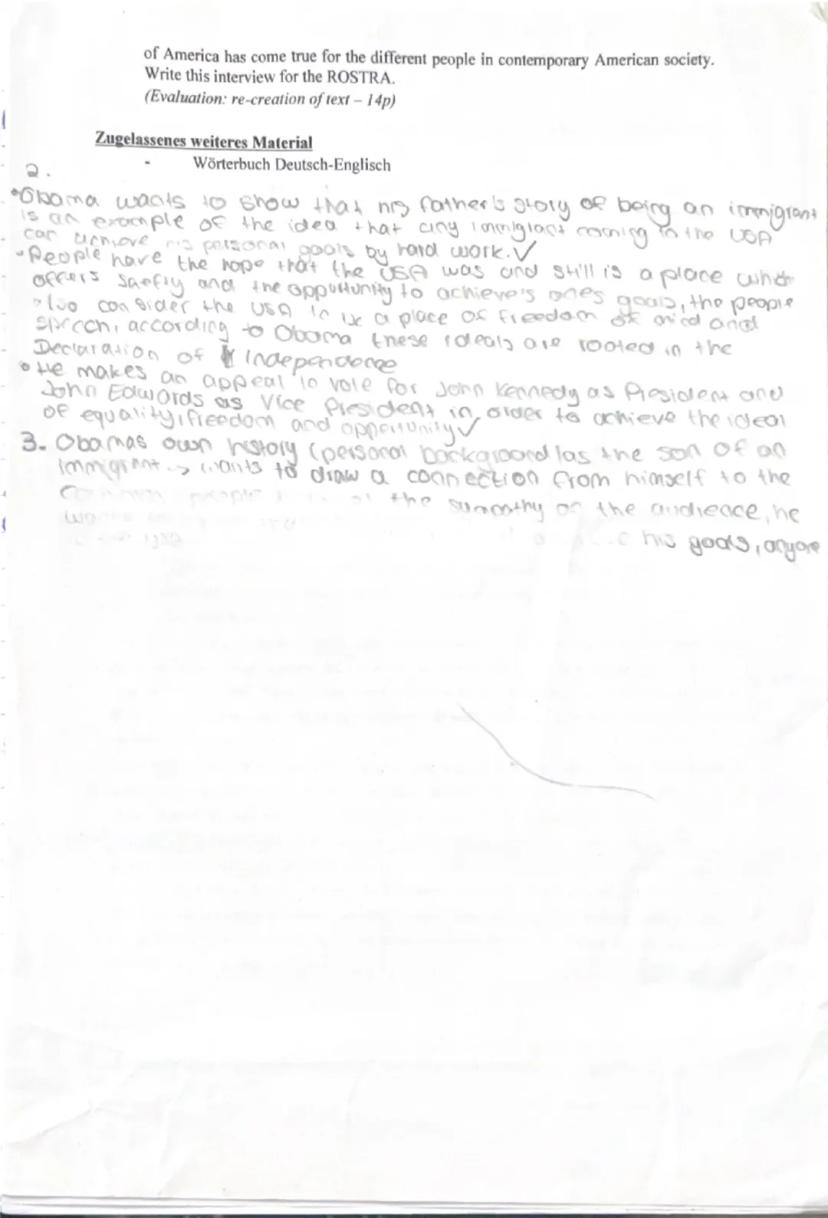 of America has come true for the different people in contemporary American society.
Write this interview for the ROSTRA.
(Evaluation: re-creation of text – 14p)
Zugelassenes weiteres Material
- Wörterbuch Deutsch-Englisch
2.
•Obama wants to show that his father's story of being an immigrant
is an example of the idea that any immigrant coming to the USA
can achieve his personal goals by hard work. ✓
•People have the hope that the USA was and still is a place which
offers saefty and the opportunity to achieve's ones goals, the people
also consider the USA to be a place of freedom of mind and
speech, according to Obama these ideals are rooted in the
Declaration of Independence
•He makes an appeal to vote for John Kennedy as President and
John Edwards as Vice President in order to achieve the ideal
of equality, freedom and opportunity ✓
3. Obamas own history (personal background) as the son of an
immigrant -> wants to draw a connection from himself to the
people the sympathy of the audience, he
his goals, anyone